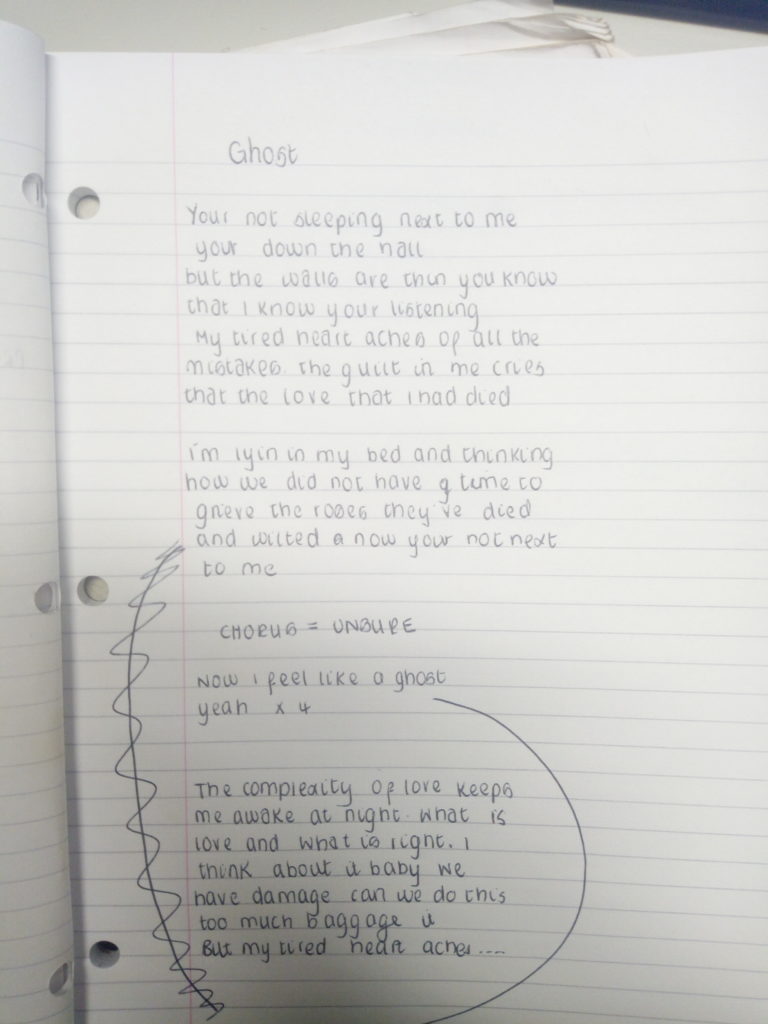 Ghost
Your not sleeping next to me
your down the hall
but the walls are thin you know
that I know your listening
My tired heart aches of all the
mistakes. the guilt in me cries
that the love that i had died
i'm lyin in my bed and thinking
how we did not have g time to
grieve the roses they've died
and wilted a now your not next
to me
CHORUS = UNSURE
Now i feel like a ghost
yeah x 4
The complexity of love keeps
me awake at night. what is
love and what is right. I
think about it baby we
have damage can we do this
too much baggage it
But my tired heart aches....